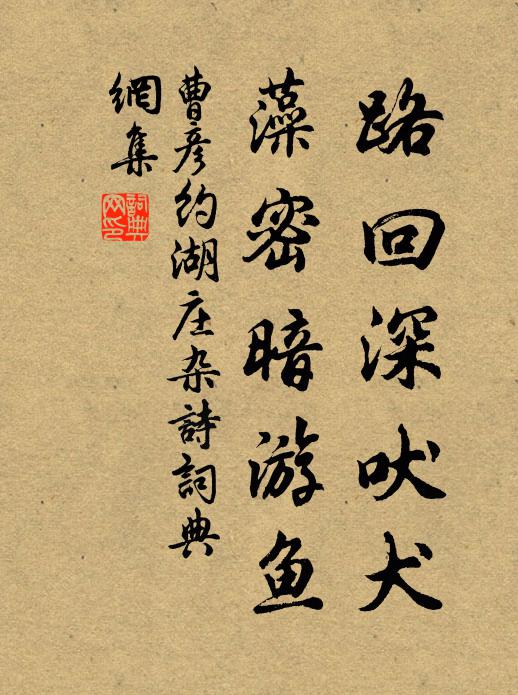 路回深吠犬
藻密暗游鱼
曹彦约湖庄杂詩詞典
網集
詞典网印